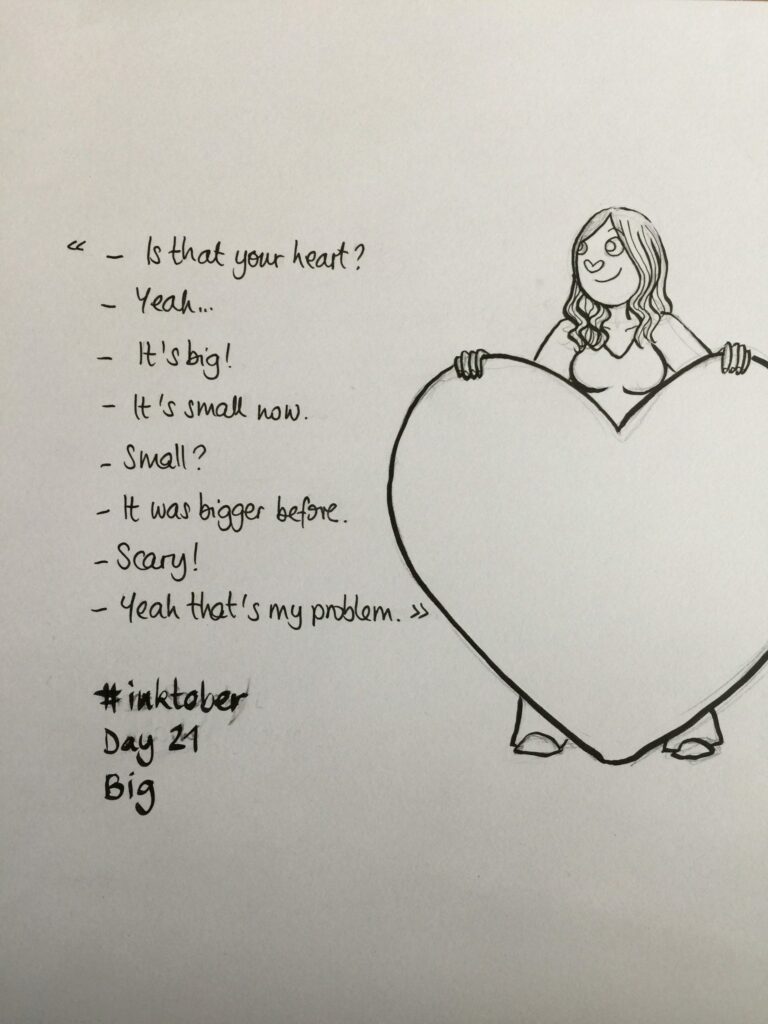 « – Is that your heart?
– Yeah...
– It's big!
– It's small now.
– Small?
– It was bigger before.
– Scary!
– Yeah that's my problem. »
#inktober
Day 21
Big